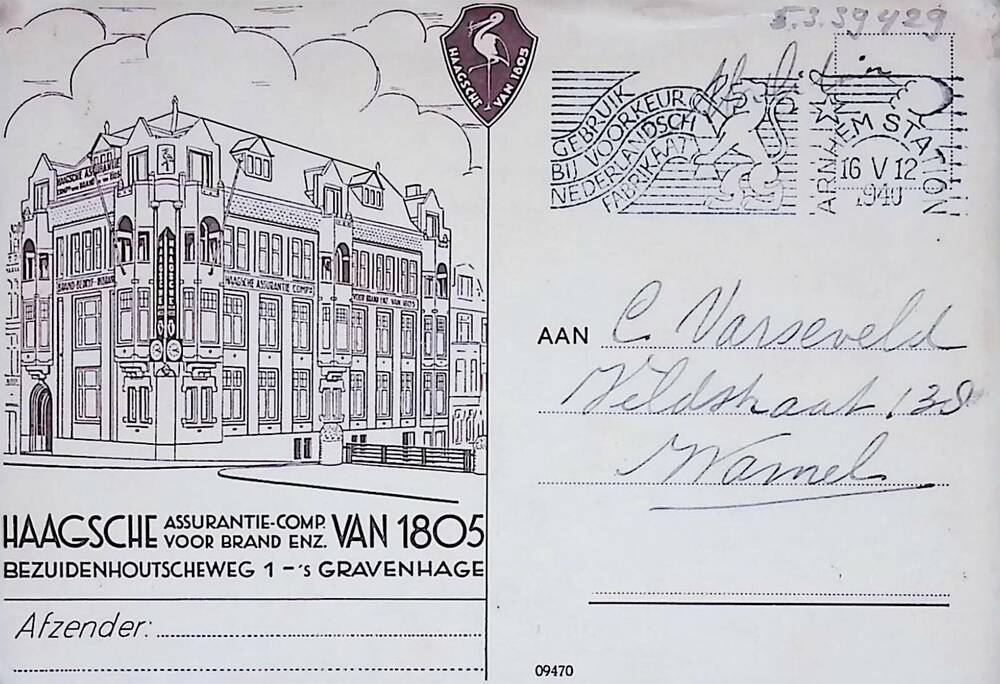 5.3.39429
HAAGSCHE VAN 1805
GEBRUIK
BIJ VOORKEUR
NEDERLANDSCH
FABRIKAAT
ARNHEM STATION
16 V 12
1940
HAAGSCHE ASSURANTIE
HAAGSCHE
HAAGSCHE
HAAGSCHE ASSURANTIE COMPIE
VOOR BRAND ENZ. VAN 1805
AAN C. Varseveld
Veldstraat 138
Wamel
HAAGSCHE ASSURANTIE-COMP. VOOR BRAND ENZ. VAN 1805
BEZUIDENHOUTSCHEWEG 1 - 's GRAVENHAGE
Afzender:
09470